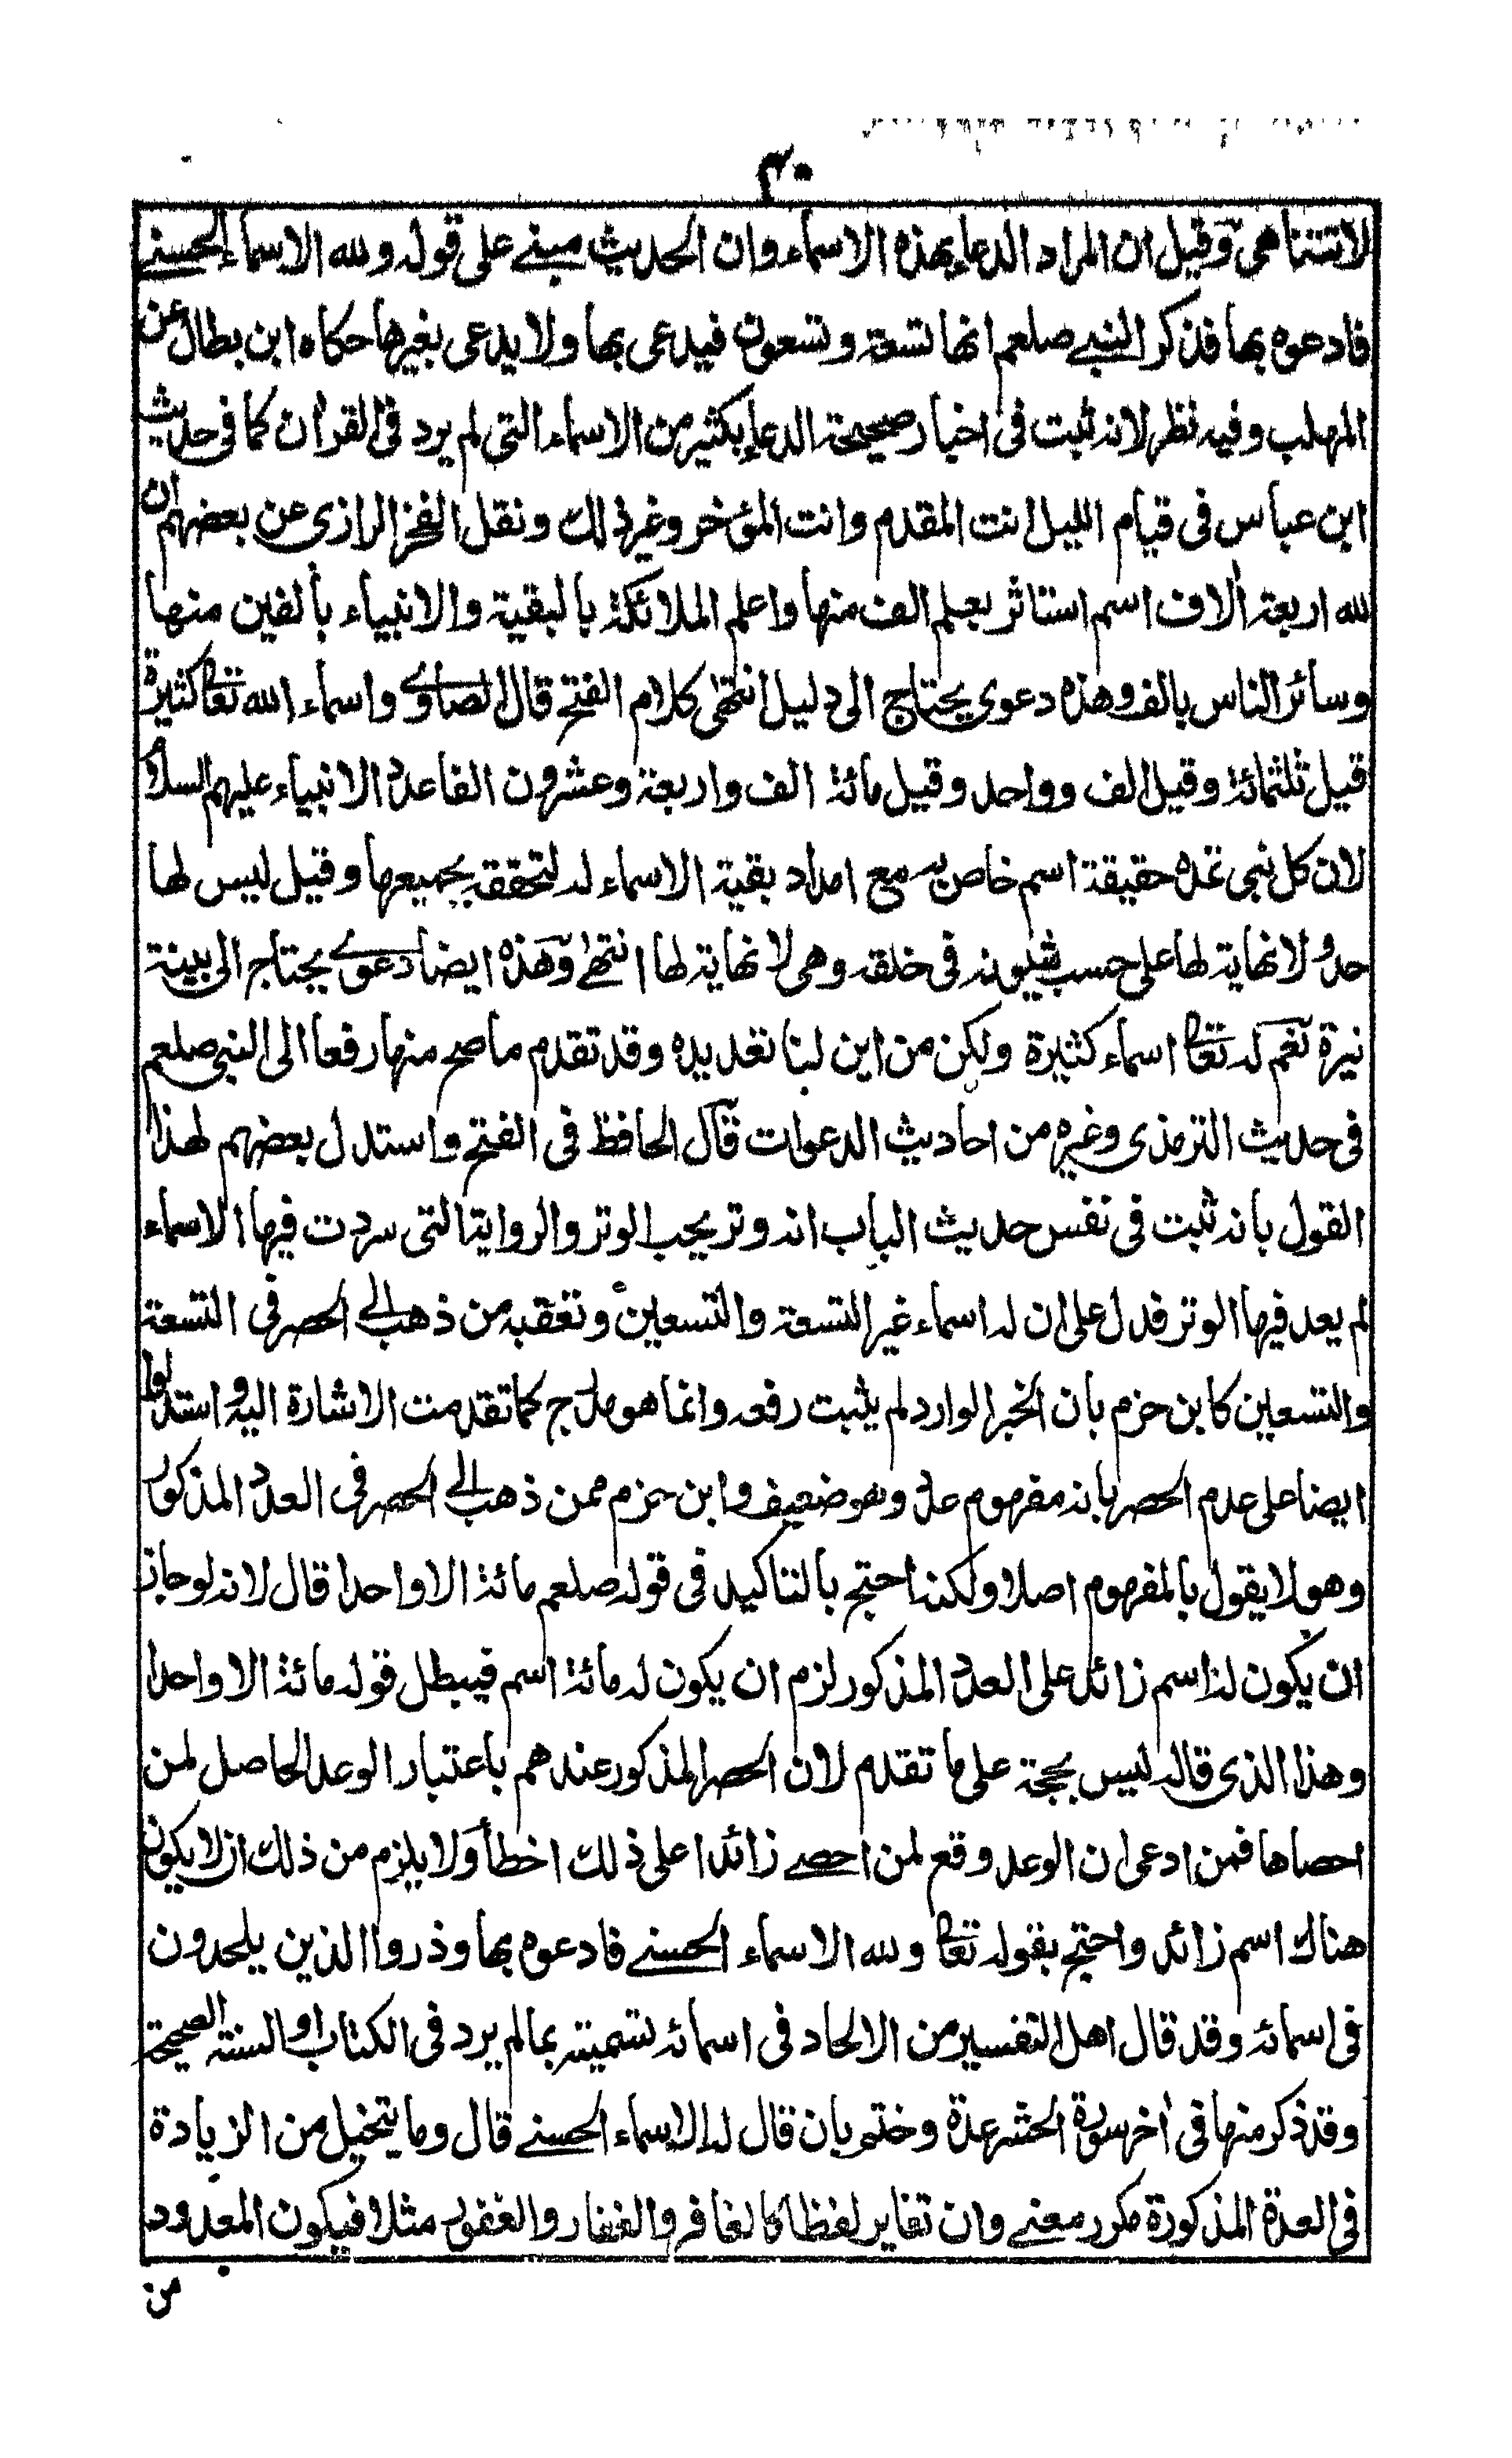 ٣٠
لا تتناهى وقيل ان المراد الدعاء بهذه الاسماء وان الحديث مبني على قوله ولله الاسماء الحسنى
فادعوه بها فذكر النبي صلعم انها تسعة وتسعون فيدعى بها ولا يدعى بغيرها حكاه ابن بطال عن
المهلب وفيه نظر لانه ثبت في اخبار صحيحة الدعاء بكثير من الاسماء التي لم يرد في القرأن كما في حديث
ابن عباس في قيام الليل انت المقدم وانت المؤخر وغير ذلك ونقل الفخر الرازي عن بعضهم ان
لله اربعة ألاف اسم استاثر بعلم الف منها واعلم الملائكة بالبقية والانبياء بألفين منها
وسائر الناس بالف وهذه دعوى يحتاج الى دليل انتهى كلام الفتح قال الصاوي واسماء الله تعا كثيرة
قيل ثلثمائة وقيل الف وواحد وقيل مائة الف واربعة وعشرون الفا عدد الانبياء عليهم السلام
لان كل نبي تمده حقيقة اسم خاص به مع امداد بقية الاسماء له لتحققه بجميعها وقيل ليس لها
حد ولا نهاية لها على حسب شيونه في خلقه وهى لا نهاية لها انتهى وهذه ايضا دعوى يحتاج الى بينة
نيرة نعم له تعا اسماء كثيرة ولكن من اين لبنا تعديده وقد تقدم ما صح منها رفعا الى النبي صلعم
في حديث الترمذي وغيره من احاديث الدعوات قال الحافظ في الفتح واستدل بعضهم لهذا
القول بانه ثبت في نفس حديث الباب انه وتر يحب الوتر والرواية التي سردت فيها الاسماء
لم يعد فيها الوتر فدل على ان له اسماء غير التسعة والتسعين وتعقبه من ذهب الى الحصر في التسعة
والتسعين كابن حزم بان الخبر الوارد لم يثبت رفعه وانما هو مدرج كما تقدمت الاشارة اليه واستدلوا
ايضا على عدم الحصر بانه مفهوم عدد وهو ضعيف وابن حزم ممن ذهب الى الحصر في العدد المذكور
وهو لا يقول بالمفهوم اصلا ولكنه احتج بالتاكيد في قوله صلعم مائة الا واحدا قال لانه لو جاز
ان يكون له اسم زائد على العدد المذكور لزم ان يكون له مائة اسم فيبطل قوله مائة الا واحدا
وهذا الذي قاله ليس بحجة على ما تقدم لان الحصر المذكور عندهم باعتبار الوعد الحاصل لمن
احصاها فمن ادعى ان الوعد وقع لمن احصى زائدا على ذلك اخطأ ولا يلزم من ذلك ان لا يكون
هناك اسم زائد واحتج بقوله تعا ولله الاسماء الحسنى فادعوه بها وذروا الذين يلحدون
في اسمائه وقد قال اهل التفسير من الالحاد في اسمائه تسميته بما لم يرد في الكتاب او السنة الصحيحة
وقد ذكر منها في أخر سورة الحشر عدة وختم بان قال له الاسماء الحسنى قال وما يتخيل من الزيادة
في العدة المذكورة مكرر معنى وان تغاير لفظا كالغافر والغفار والغفور مثلا فيكون المعدود
من